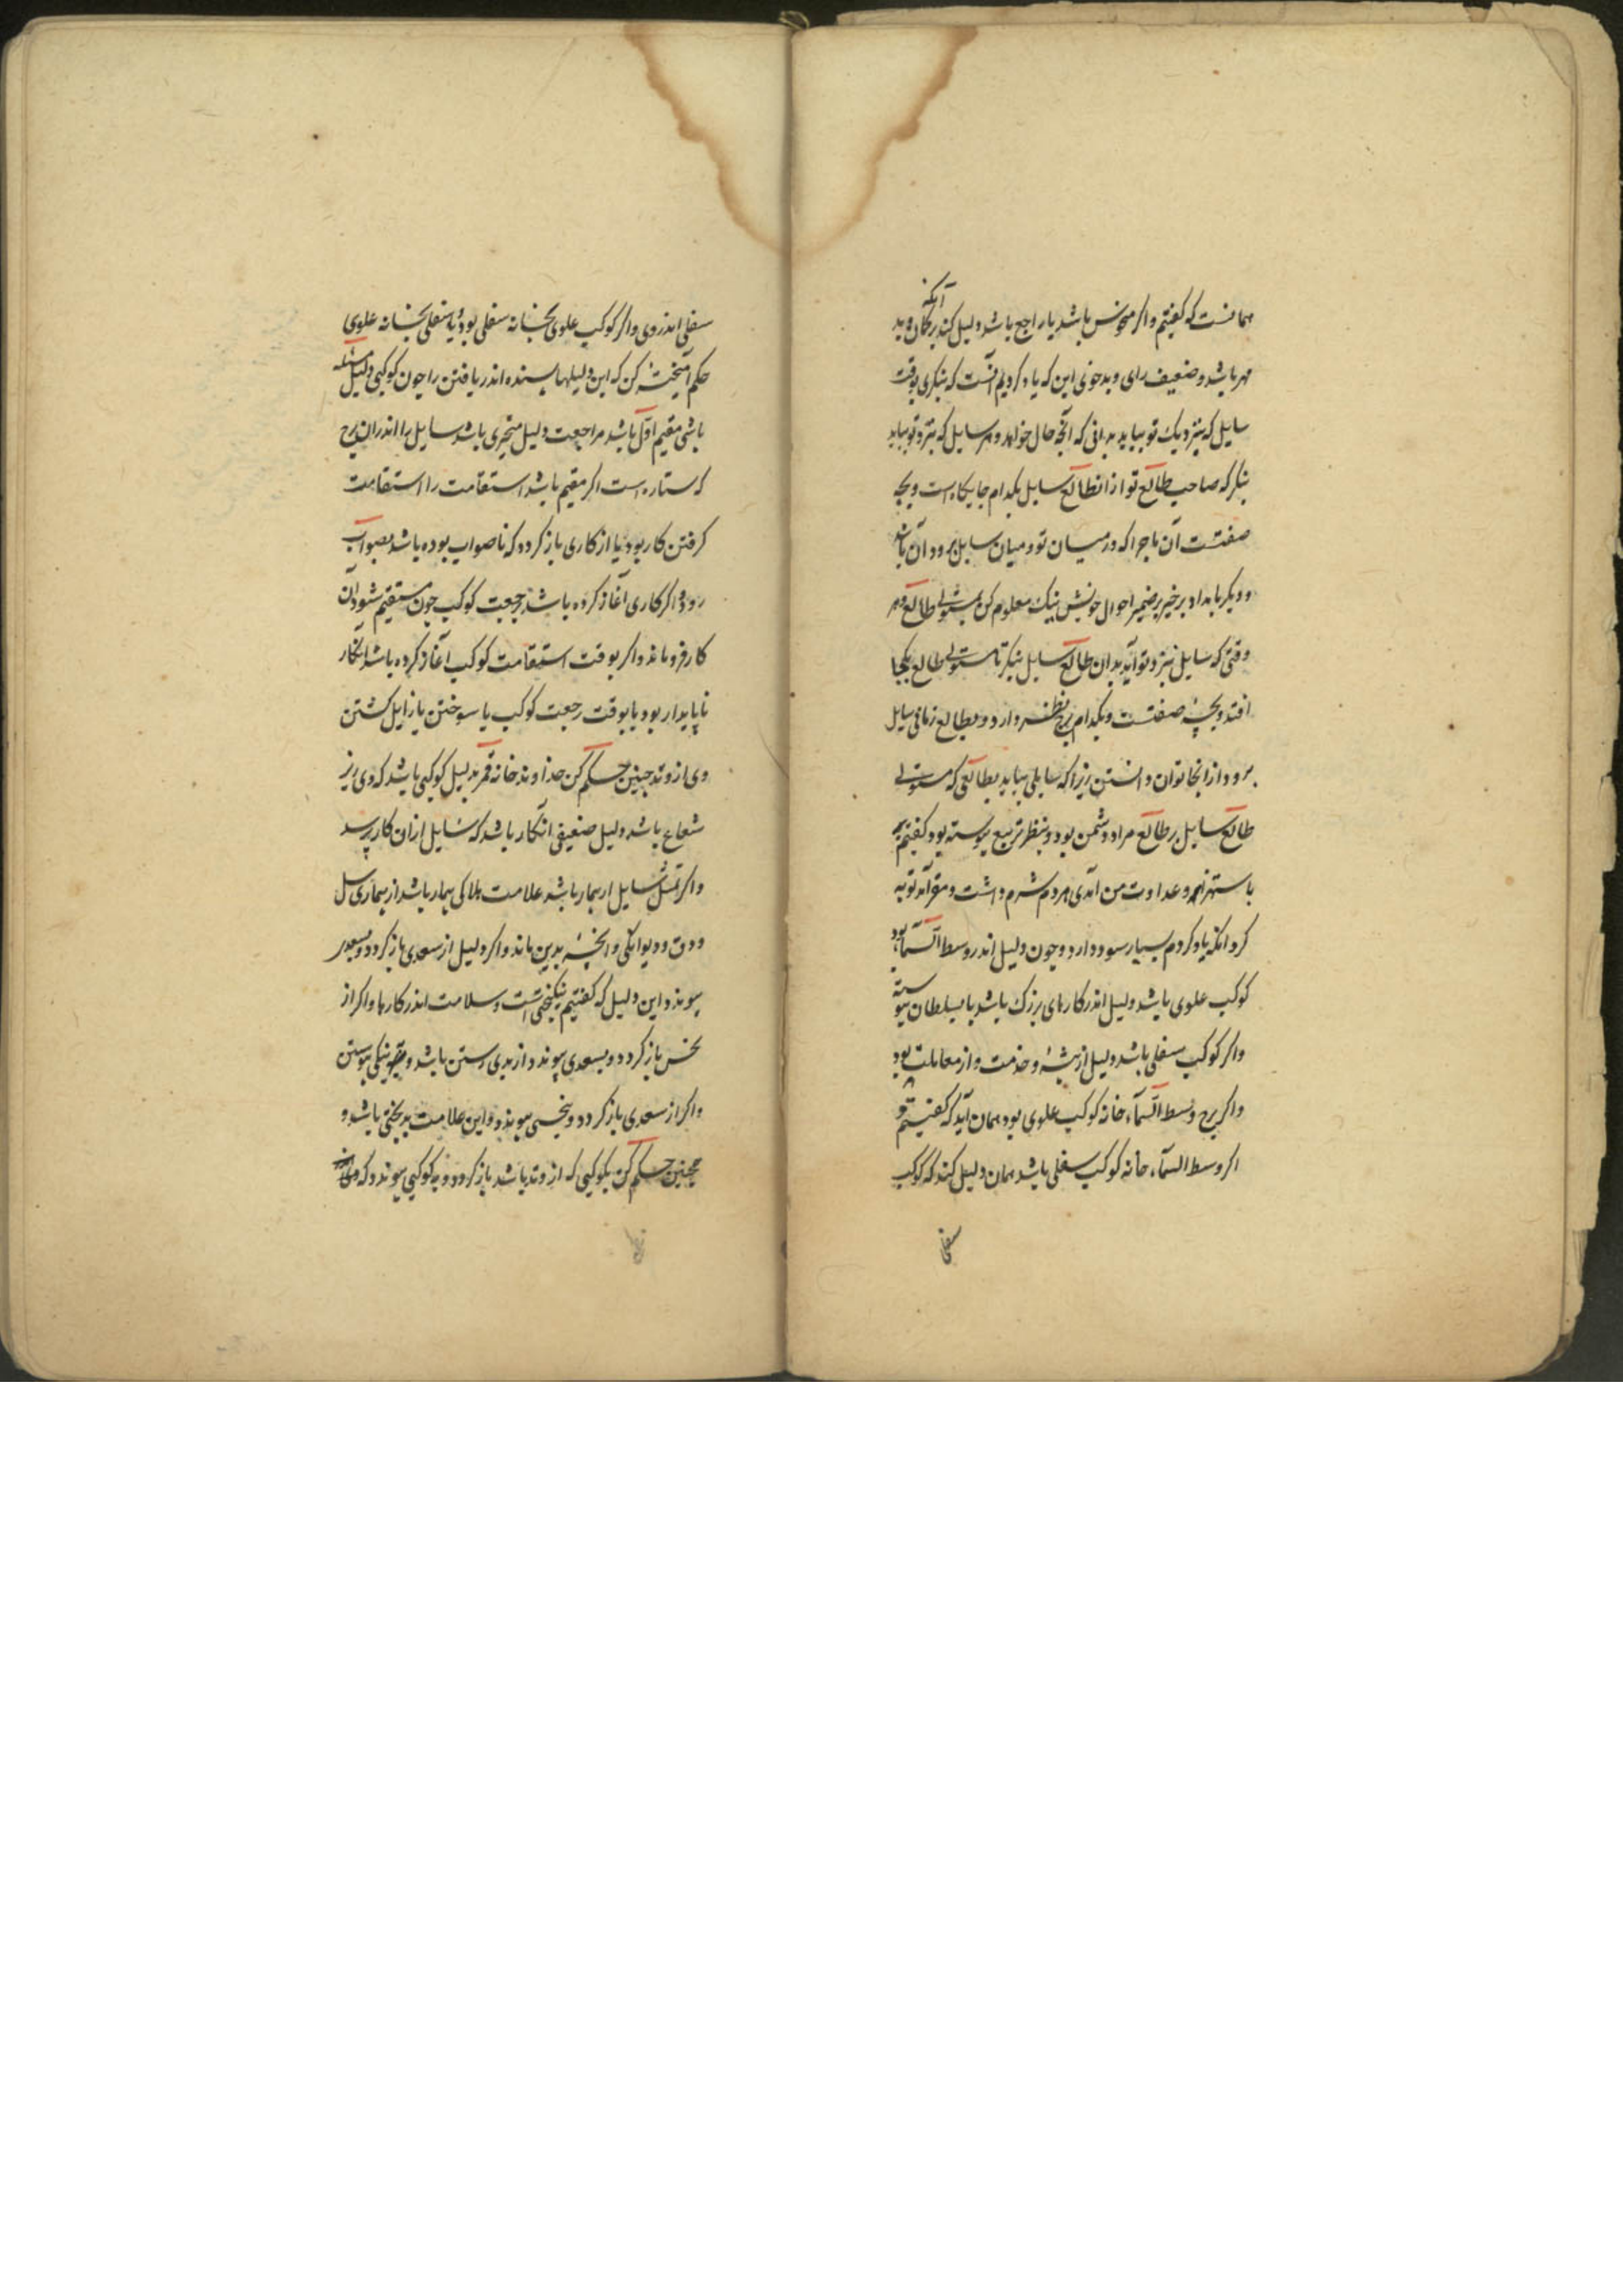 همانست که گفتیم و اکر منحوس باشد یا راجع باشد دلیل کند آنکه
مهر باشد و ضعیف رای و بدخوی این که یاد کردیم آنست که بنکری بوقت
سایل که بنزدیک تو بیاید بدانی که آنچه حال خواهد و هر سایل که بنزد تو بیاید
بنکر که صاحب طالع تو از ان طالع سایل بکدام جایکاه است و بچه
صفتست آن ماجرا که در میان تو و میان سایل برود آن باشد
و دیکر بامداد برخیز بر ضمیر احوال خویش نیک معلوم کن مستولی طالع و هر
وقتی که سایل بنزد تو آید بدان طالع سایل بنکر تا مستولی طالع بکجا
افتد و بچه صفتست و بکدام برج نظر دارد و بطالع زمانی سایل
برود از انجا توان دانستن زیرا که سایلی بیاید بطالعی که مستولی
طالع سایل بر طالع مراد دشمن بود و بنظر تربیع پیوسته بود کفتم
باستهزا و عداوت من آمدی مردم شرم داشت و مقر آمد توبه
کرد آنکه یاد کردم بسیار سود دارد و چون دلیل اندر وسط السّمآء بود
کوکب علوی باشد دلیل اندر کارهای بزرک باشد یا بسلطان پیوسته
واکر کوکب سفلی باشد دلیل از پیشه و خدمت و از معاملت بود
واکر برج وسط السّمآء خانه کوکب علوی بود همان آید که کفتیم و
اکر وسط السّمآء خانه کوکب سفلی باشد همان دلیل کند که کوکب
سفلی
سفلی اندر وی واکر کوکب علوی بخانه سفلی بود یا سفلی بخانه علوی
حکم آمیخته کن که این دلیلها بسنده اندر یافتن را چون کوکبی دلیل مسئله
باشی مقیم اوّل باشد مراجعت دلیل متحیری باشد سایل را اندران برج
که ستاره است اکر مقیم باشد استقامت را استقامت
کرفتن کار بود یا از کاری باز کردد که ناصواب بوده باشد بصواب
رود و اکر کاری آغاز کرده باشد برجعت کوکب چون مستقیم شود آن
کار فروماند واکر بوقت استقامت کوکب آغاز کرده باشد آنکار
ناپایدار بود یا بوقت رجعت کوکب یا سوختن یا زایل کشتن
وی از وتد چنین حکم کن خداوند خانه قمر بدلیل کوکبی باشد که وی زیر
شعاع باشد دلیل ضعیفی آنکار باشد که سایل از ان کار پرسد
واکر سایل از بیمار باشد علامت هلاکی بیمار باشد از بیماری سل
و دق و دیوانکی و آنچه بدین ماند واکر دلیل از سعدی باز کردد و بسعدی
پیوندد این دلیل که کفتیم نیکبختی است و سلامت اندر کارها واکر از
نحس باز کردد و بسعدی پیوندد از بدی رستن باشد و بنیکی پیوستن
واکر از سعدی باز کردد و بنحسی پیوندد و این علامت بدبختی باشد و
همچنین حکم کن بکوکبی که از وتد باشد باز کردد و بکوکبی پیوندد که